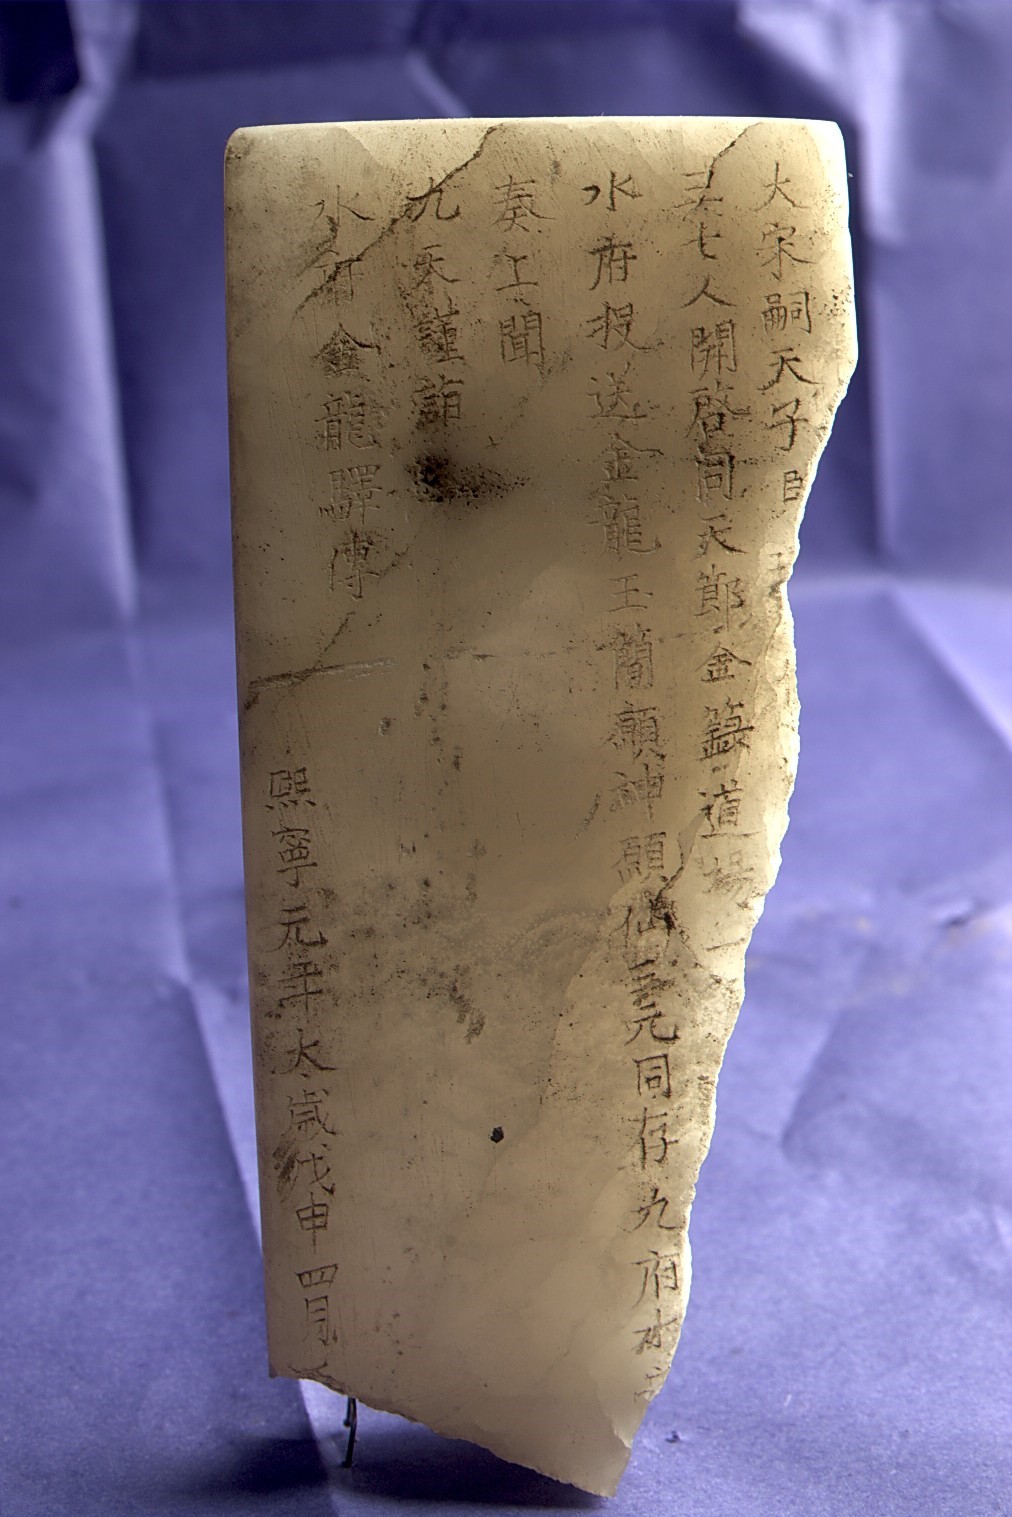 大宋嗣天子臣
七人開啓同天節金籙道場一
水府投送金龍玉簡願神願仙三元同存九府水
奏上聞
九天謹詣
水府金龍驛傳
熙寧元年太歲戊申四月